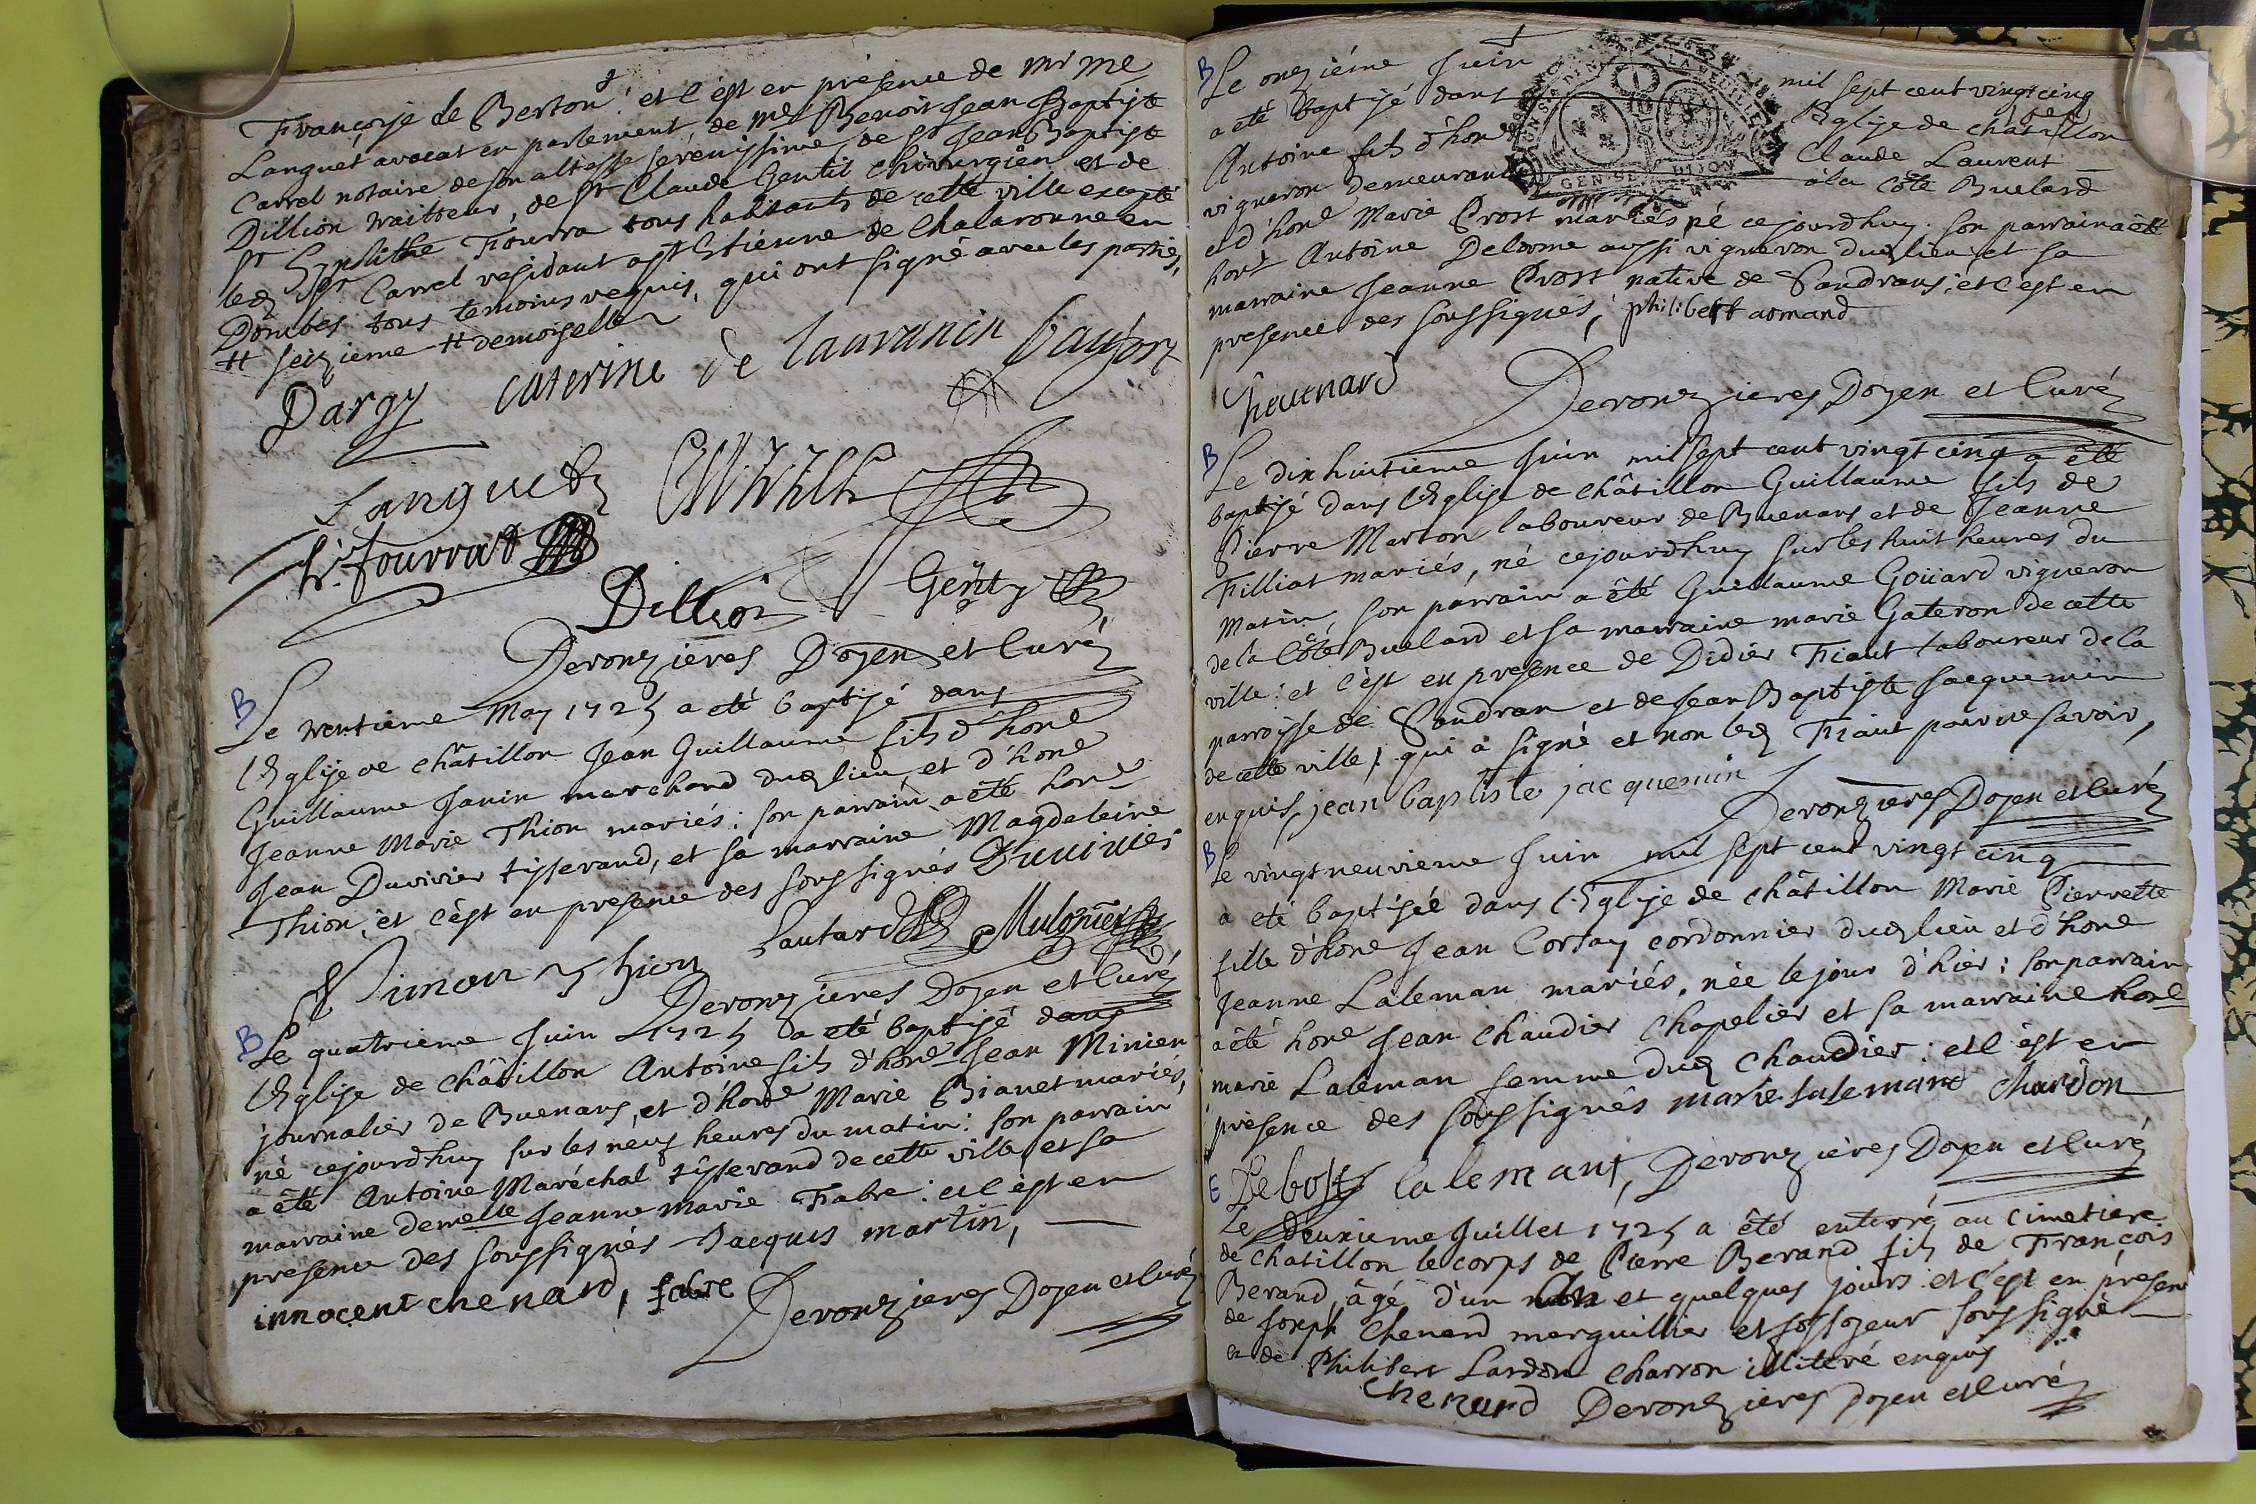 Françoise de Berton; et c'est en présence de Mr Me
Languet avocat en parlement, de Me Benoit Jean Baptiste
Carrel notaire de son altesse serenissime, de Sr Jean Baptiste
Dillion traitteur, de Sr Claude Gentil chirurgien et de
Sr Hypolithe Fourra tous habitants de cette ville excepté
led Sr Carrel residant a St Etienne de Chalaronne en
Dombes tous temoins requis, qui ont signé avec les parties,
# seizieme # demoiselle
Dargy Caterine de
Languet
hte fourrat
Dillion Genty
Deronzieres Doyen et Curé
B
Le trentieme May 1725 a eté baptisé dans
l'Eglise de châtillon Jean Guillaume fils d'hone
Guillaume Janin marchand dud lieu, et d'hone
Jeanne Marie Thion mariés: son parrain a eté hone
Jean Duvivier tisserand, et sa marraine Magdeleine
Thion, et c'est en presence des soussignés Duvivier
Simon Thion Lautard Mulonier
Deronzieres Doyen et Curé
B
Le quatrieme Juin 1725 a eté baptisé dans
l'Eglise de châtillon Antoine fils d'hone Jean Minier
journalier de Buenans, et d'hone Marie Bianet mariés,
né cejourd'huy sur les neuf heures du matin: son parrain
a êté Antoine Maréchal tisserand de cette ville et sa
marraine demelle Jeanne Marie Fabre: et c'est en
presence des soussignés Jacques martin,
innocent chenard, fabre
Deronzieres Doyen et Curé
B
Le onzième Juin mil sept cent vingt cinq
a eté baptisé dans l'Eglise de châtillon
Antoine fils d'hone Claude Laurent
vigneron demeurant à la Côte Buelard
et d'hone Marie Prost mariés né cejourd'huy. Son parrain a êté
hone Antoine Delorme aussi vigneron dud lieu et sa
marraine Jeanne Prost native de Sandrans; et c'est en
presence des soussignés, philibert armand
Chenard
Deronzieres Doyen et Curé
B
Le dix huitieme Juin mil sept cent vingt cinq a êté
baptisé dans l'Eglise de châtillon Guillaume fils de
Pierre Marton laboureur de Buenans et de Jeanne
Filliat mariés, né cejourd'huy sur les huit heures du
matin, son parrain a êté Guillaume Goüard vigneron
de la Côte Buelard et sa marraine marie Gateron de cette
ville: et c'est en presence de Didier Fiaut laboureur de la
parroisse de Sandran et de Jean Baptiste Jacquemin
de cette ville; qui a signé et non led Fiaut pour ne savoir,
enquis, jean baptiste jacquemin
Deronzieres Doyen et Curé
B
Le vingt neuvieme Juin mil sept cent vingt cinq
a eté baptisée dans l'Eglise de châtillon Marie Pierrette
fille d'hone Jean Corsay cordonnier dud lieu et d'hone
Jeanne Laleman mariés, née le jour d'hier: son parrain
a êté hone Jean Chaudier Chapelier et sa marraine hone
marie Laleman femme dud Chaudier: et c'est en
présence des soussignés marie lalemant Chardon
Debost lalemant, Deronzières Doyen et Curé
E
Le Deuxieme Juillet 1725 a êté enterré au cimetiere
de chatillon le corps de Pierre Berand fils de François
Berand, âgé d'un an et quelques jours et c'est en presence
de Joseph Chenard marguillier et fossoyeur soussigné
et de Philibert Lardon Charron illiteré enquis
Chenard Deronzieres Doyen et Curé